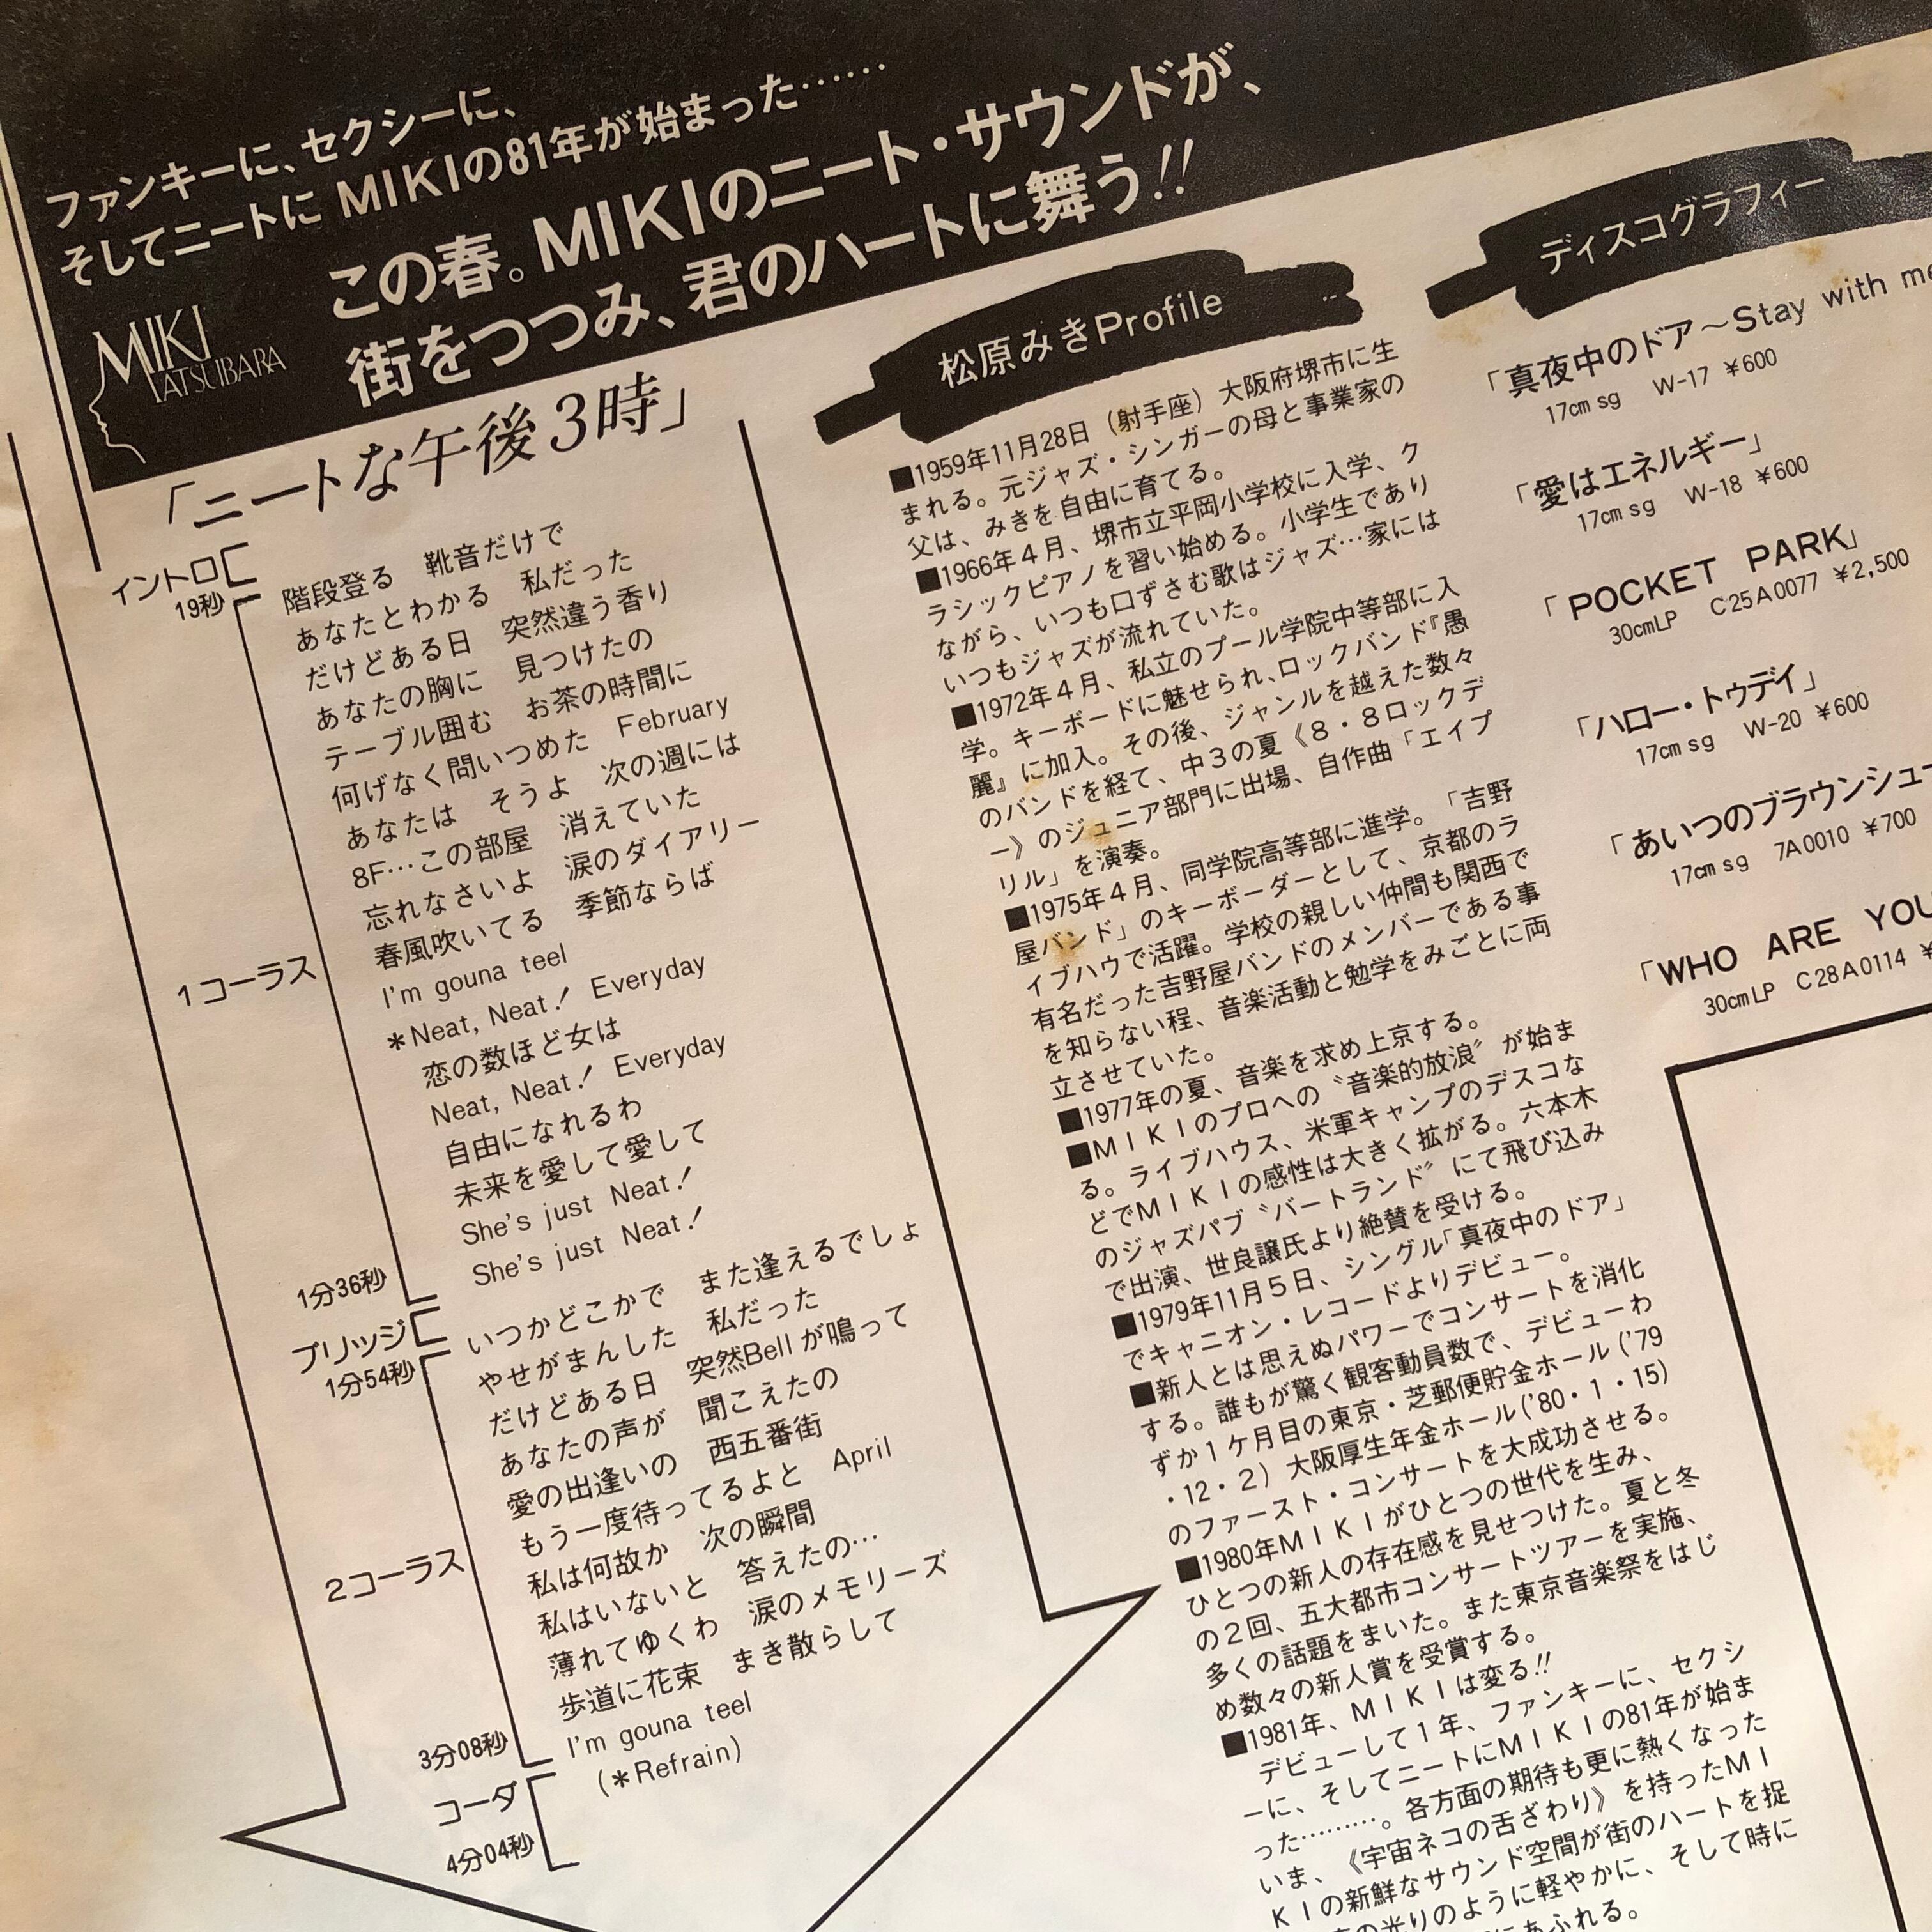 ファンキーに、セクシーに、
そしてニートに MIKIの81年が始まった……
この春。MIKIのニート・サウンドが、
街をつつみ、君のハートに舞う!!
MIKI
MATSUBARA
「ニートな午後3時」
イントロ
19秒
階段登る　靴音だけで
あなたとわかる　私だった
だけどある日　突然違う香り
あなたの胸に　見つけたの
テーブル囲む　お茶の時間に
何げなく問いつめた　February
あなたは　そうよ　次の週には
8F…この部屋　消えていた
忘れなさいよ　涙のダイアリー
春風吹いてる　季節ならば
I'm gouna teel
＊Neat, Neat! Everyday
恋の数ほど女は
Neat, Neat! Everyday
自由になれるわ
未来を愛して愛して
She's just Neat!
She's just Neat!
1コーラス
1分36秒
ブリッジ
1分54秒
いつかどこかで　また逢えるでしょ
やせがまんした　私だった
だけどある日　突然Bellが鳴って
あなたの声が　聞こえたの
愛の出逢いの　西五番街
もう一度待ってるよと　April
私は何故か　次の瞬間
私はいないと　答えたの…
薄れてゆくわ　涙のメモリーズ
歩道に花束　まき散らして
I'm gouna teel
(＊Refrain)
2コーラス
3分08秒
コーダ
4分04秒
松原みきProfile
■1959年11月28日（射手座）大阪府堺市に生
まれる。元ジャズ・シンガーの母と事業家の
父は、みきを自由に育てる。
■1966年4月、堺市立平岡小学校に入学、ク
ラシックピアノを習い始める。小学生であり
ながら、いつも口ずさむ歌はジャズ…家には
いつもジャズが流れていた。
■1972年4月、私立のプール学院中等部に入
学。キーボードに魅せられ、ロックバンド『愚
麗』に加入。その後、ジャンルを越えた数々
のバンドを経て、中3の夏《8・8ロックデ
ー》のジュニア部門に出場、自作曲「エイプ
リル」を演奏。
■1975年4月、同学院高等部に進学。「吉野
屋バンド」のキーボーダーとして、京都のラ
イブハウで活躍。学校の親しい仲間も関西で
有名だった吉野屋バンドのメンバーである事
を知らない程、音楽活動と勉学をみごとに両
立させていた。
■1977年の夏、音楽を求め上京する。
■MIKIのプロへの〝音楽的放浪〟が始ま
る。ライブハウス、米軍キャンプのデスコな
どでMIKIの感性は大きく拡がる。六本木
のジャズパブ〝バートランド〟にて飛び込み
で出演、世良譲氏より絶賛を受ける。
■1979年11月5日、シングル「真夜中のドア」
でキャニオン・レコードよりデビュー。
■新人とは思えぬパワーでコンサートを消化
する。誰もが驚く観客動員数で、デビューわ
ずか1ケ月目の東京・芝郵便貯金ホール('79
・12・2）大阪厚生年金ホール('80・1・15)
のファースト・コンサートを大成功させる。
■1980年MIKIがひとつの世代を生み、
ひとつの新人の存在感を見せつけた。夏と冬
の2回、五大都市コンサートツアーを実施、
多くの話題をまいた。また東京音楽祭をはじ
め数々の新人賞を受賞する。
■1981年、MIKIは変る!!
デビューして1年、ファンキーに、セクシ
ーに、そしてニートにMIKIの81年が始ま
った………。各方面の期待も更に熱くなった
いま、《宇宙ネコの舌ざわり》を持ったMI
KIの新鮮なサウンド空間が街のハートを捉
の光りのように軽やかに、そして時に
にあふれる。
ディスコグラフィー
「真夜中のドア～Stay with me
17cm sg　W-17 ￥600
「愛はエネルギー」
17cm sg　W-18 ￥600
「POCKET PARK」
30cmLP　C25A0077 ￥2,500
「ハロー・トゥデイ」
17cm sg　W-20 ￥600
「あいつのブラウンシュー
17cm sg　7A0010 ￥700
「WHO ARE YOU
30cmLP　C28A0114 ￥